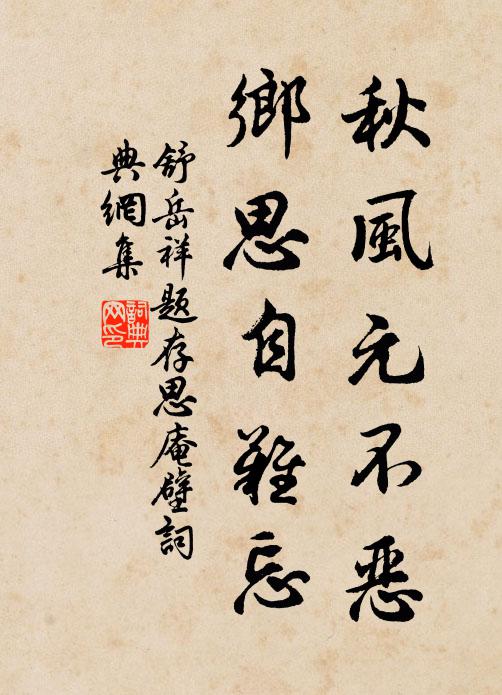 秋風元不惡
鄉思自難忘
舒岳祥題存思庵壁詞
典網集
詞典
网印